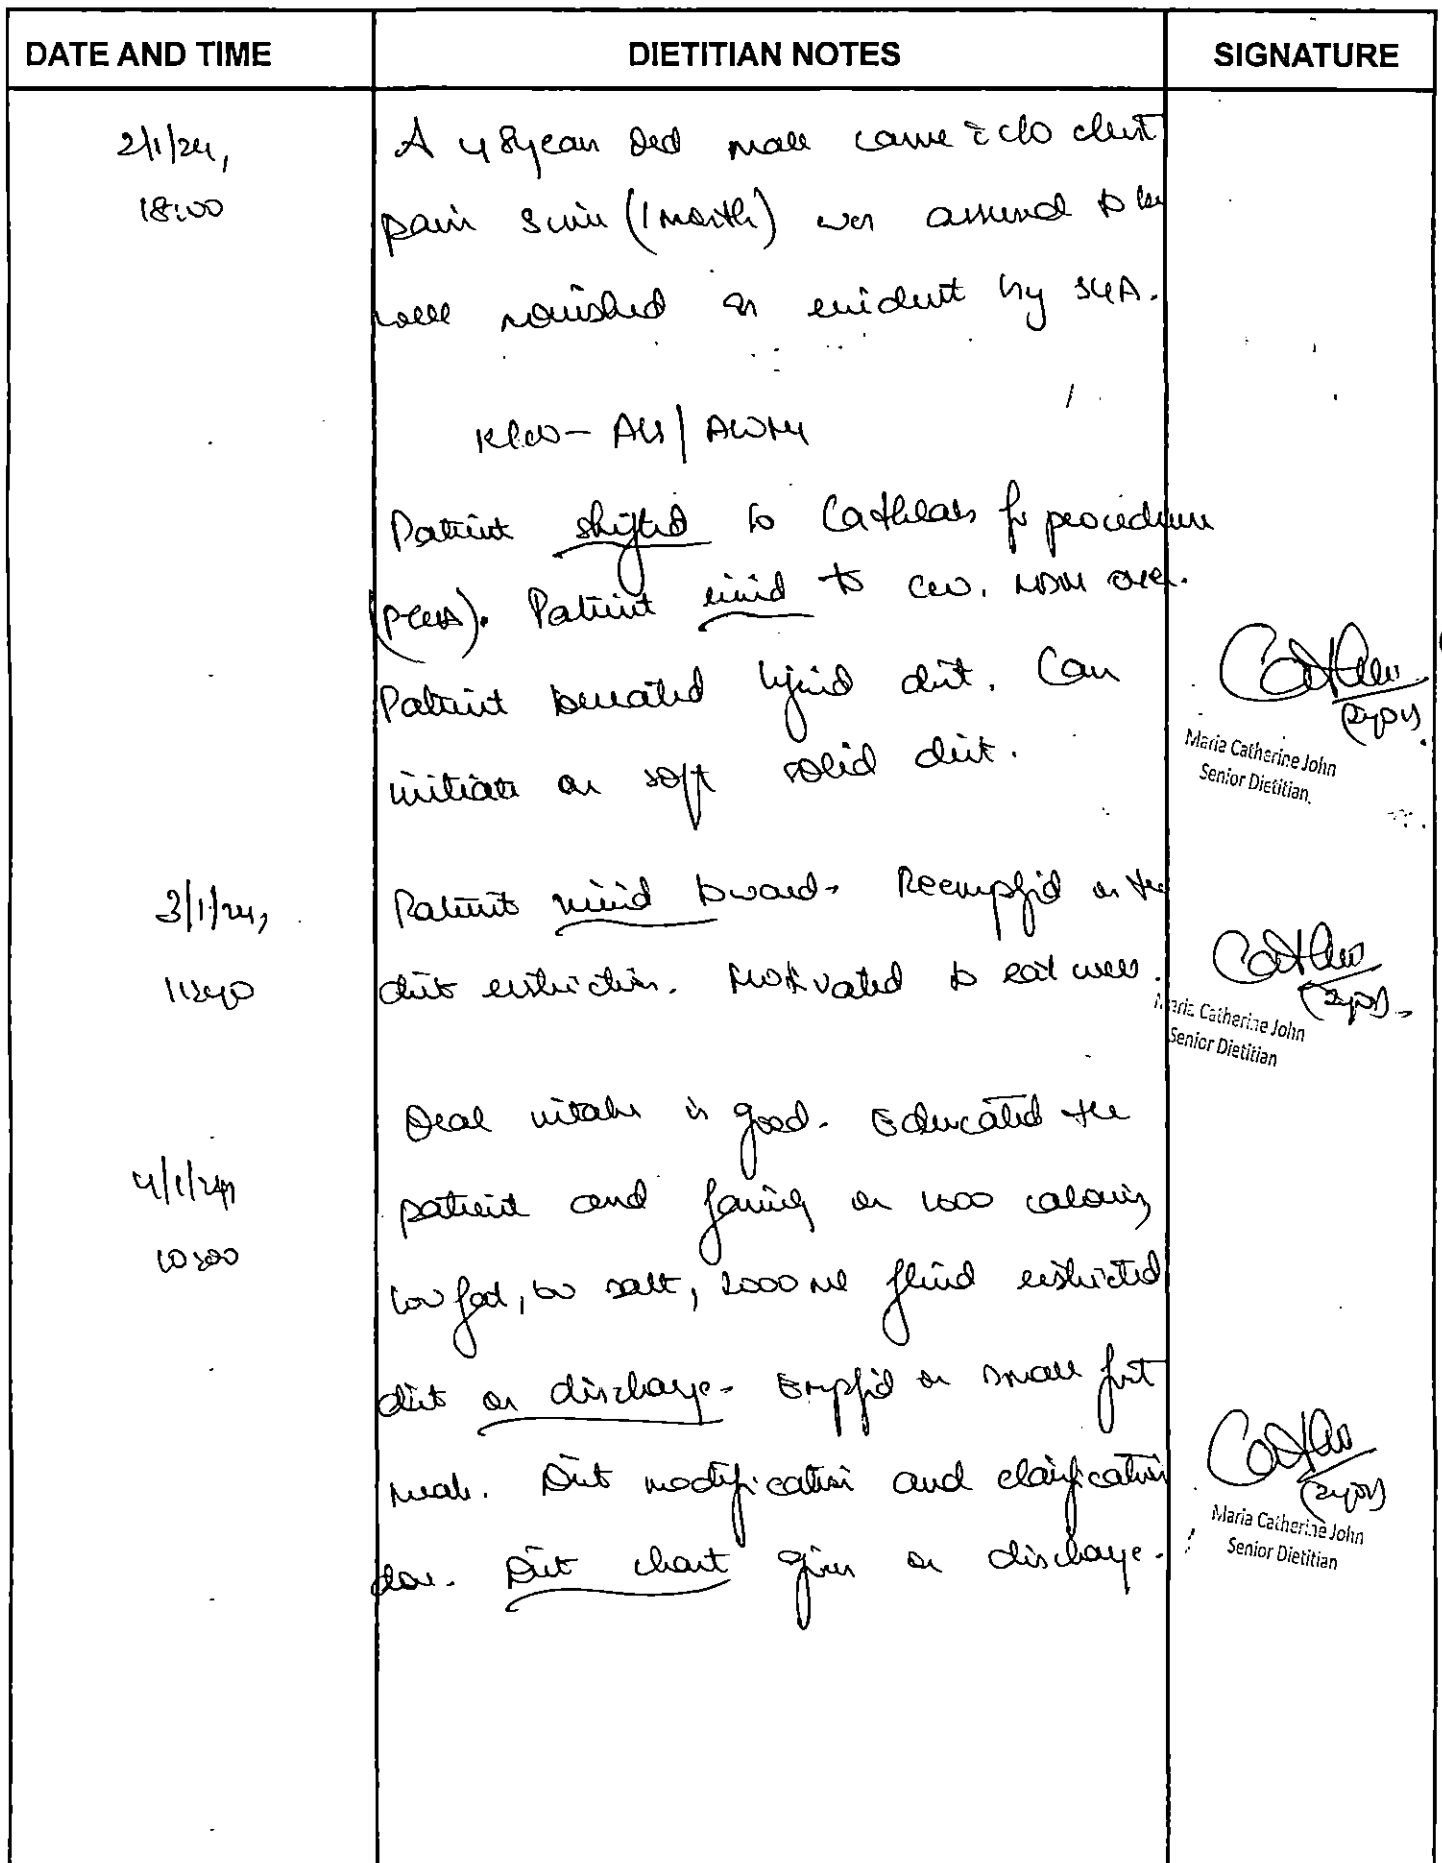 DATE AND TIME DIETITIAN NOTES SIGNATURE
2/1/24, A 48year old male came c̄ c/o chest
18:00 pain since (1 month) was assessed to be
well nourished as evident by SGA.
K/c/o - ACS | AWMI
Patient shifted to Cathlab for procedure
Patient to
Patient tolerated liquid diet. Can
initiate on soft solid diet.
Maria Catherine John
Senior Dietitian
3/1/24, Patient ward. on the
11:40 diet restriction. Motivated to eat well.
Maria Catherine John
Senior Dietitian
Oral intake is good. Educated the
4/1/24, patient and family on calories,
10:00 low fat, low salt, fluid restricted
diet on discharge. on small
meals. Diet modification and clarification
done. Diet chart given on discharge.
Maria Catherine John
Senior Dietitian